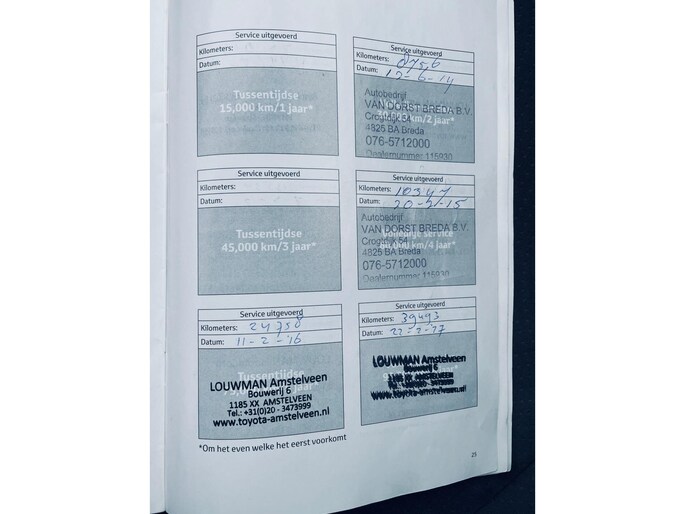 Service uitgevoerd
Kilometers:
Datum:
Tussentijdse
15,000 km/1 jaar*
Service uitgevoerd
Kilometers: 8756
Datum: 12-6-14
Autobedrijf
VAN DORST BREDA B.V.
Crogtdijk 54
km/2 jaar*
4825 BA Breda
076-5712000
Dealernummer 115930
Service uitgevoerd
Kilometers:
Datum:
Tussentijdse
45,000 km/3 jaar*
Service uitgevoerd
Kilometers: 10347
Datum: 20-2-15
Autobedrijf
VAN DORST BREDA B.V.
Volledige service
Crogtdijk 54
km/4 jaar*
4825 BA Breda
076-5712000
Dealernummer 115930
Service uitgevoerd
Kilometers: 24758
Datum: 11-2-'16
Tussentijdse
LOUWMAN Amstelveen
Bouwerij 6
1185 XX AMSTELVEEN
Tel.: +31(0)20 - 3473999
www.toyota-amstelveen.nl
Service uitgevoerd
Kilometers: 39493
Datum: 22-2-'17
LOUWMAN Amstelveen
Bouwerij 6
1185 XX AMSTELVEEN
Tel.: +31(0)20 - 3473999
www.toyota-amstelveen.nl
*Om het even welke het eerst voorkomt
25